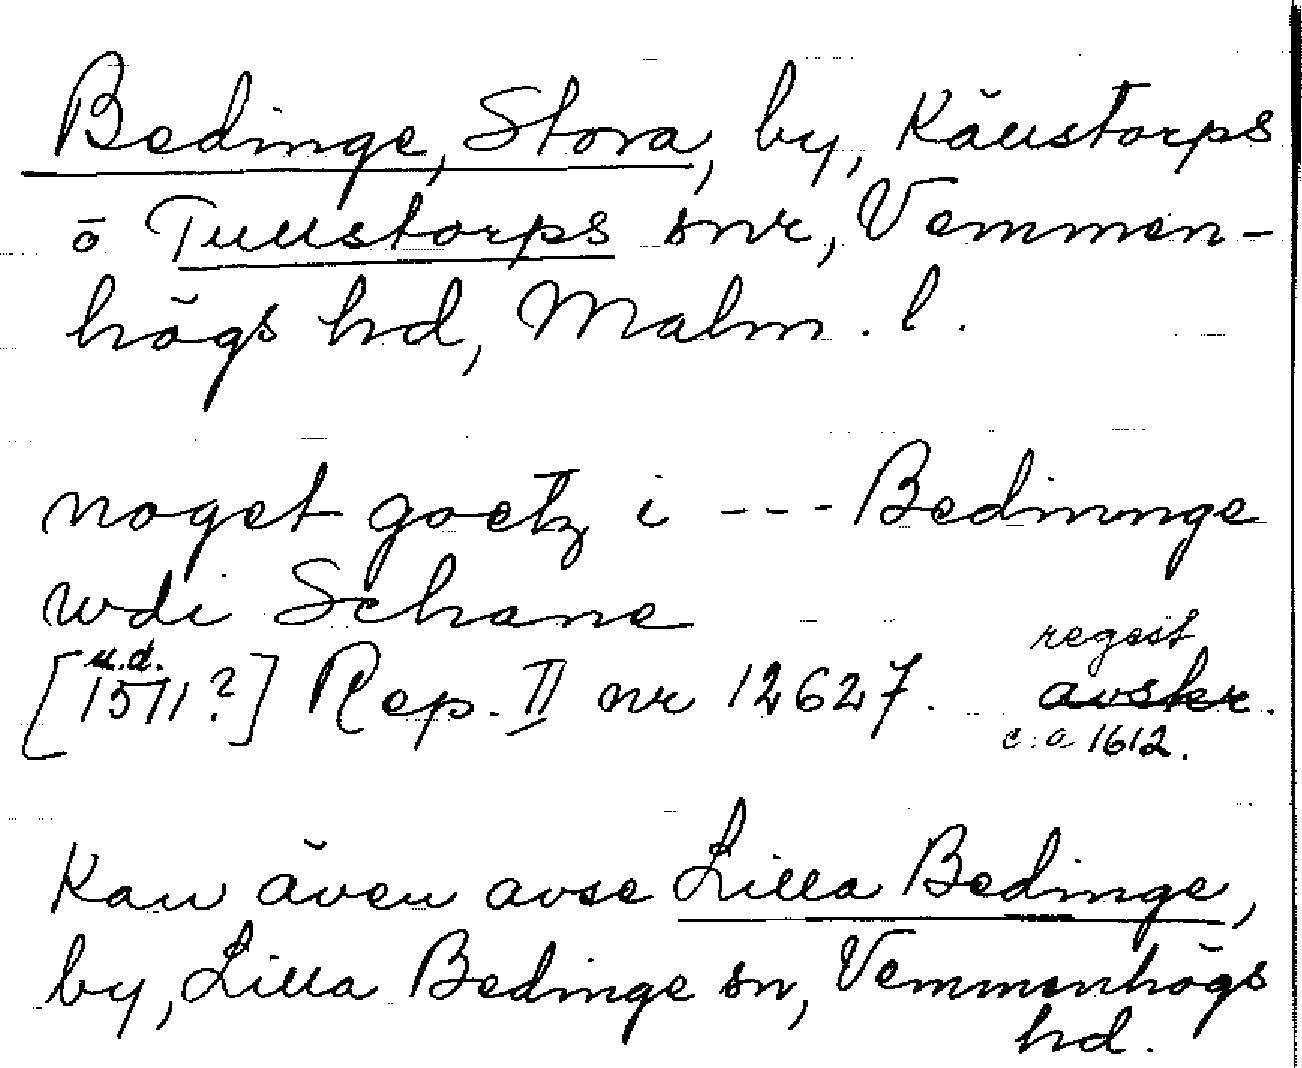 Bedinge, Stora, by, Källstorps
o Tullstorps snr, Vemmen-
högs hd, Malm. l.
noget goetz i --- Bedninge
wdi Schane
u.d.
[1571?] Rep. II nr 12627. regest
avskr.
c:a 1612.
Kan även avse Lilla Bedinge,
by, Lilla Bedinge sn, Vemmenhögs
hd.